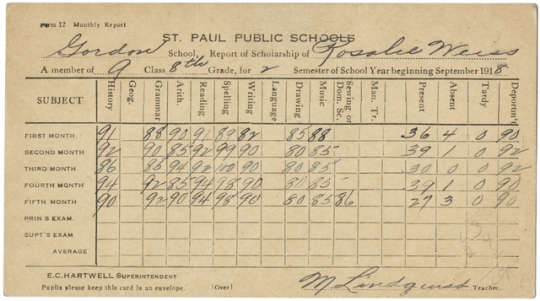 Form 12 Monthly Report
ST. PAUL PUBLIC SCHOOLS
Gordon School, Report of Scholarship of Rosalie Weiss
A member of 9 Class 8th Grade, for 2 Semester of School Year beginning September 1918
SUBJECT History Geog. Grammar Arith. Reading Spelling Writing Language Drawing Music Sewing or Dom. Sc. Man. Tr. Present Absent Tardy Deportm't
FIRST MONTH. 91 88 90 91 89 82 85 88 36 4 0 90
SECOND MONTH 92 90 85 92 99 90 80 85 39 1 0 92
THIRD MONTH 86 85 94 92 100 90 80 85 30 0 0 92
FOURTH MONTH 94 92 85 94 98 90 80 85 39 1 0 90
FIFTH MONTH 90 92 90 94 98 90 80 85 86 27 3 0 90
PRIN'S EXAM.
SUPT'S EXAM
AVERAGE
E.C. HARTWELL SUPERINTENDENT
M. Lindquist Teacher.
Pupils please keep this card in an envelope. (Over)